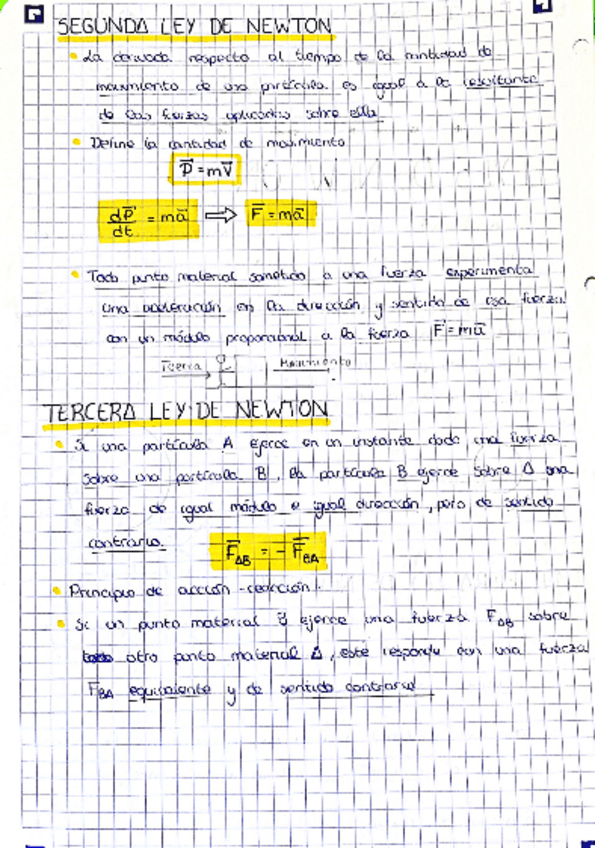 SEGUNDA LEY DE NEWTON
• La derivada respecto al tiempo de la cantidad de
movimiento de una partícula es igual a la resultante
de las fuerzas aplicadas sobre ella
• Define la cantidad de movimiento
P⃗ = mV⃗
dP⃗/dt = ma⃗ ⇒ F⃗ = ma⃗
• Todo punto material sometido a una fuerza experimenta
una aceleración en la dirección y sentido de esa fuerza
con un módulo proporcional a la fuerza F⃗ = ma⃗
Fuerza Movimiento
TERCERA LEY DE NEWTON
• Si una partícula A ejerce en un instante dado una fuerza
sobre una partícula B, la partícula B ejerce sobre A una
fuerza de igual módulo e igual dirección, pero de sentido
contrario.
F⃗AB = - F⃗BA
• Principio de acción-reacción
• Si un punto material B ejerce una fuerza FAB sobre
otro punto material A, este responde con una fuerza
FBA equivalente y de sentido contrario